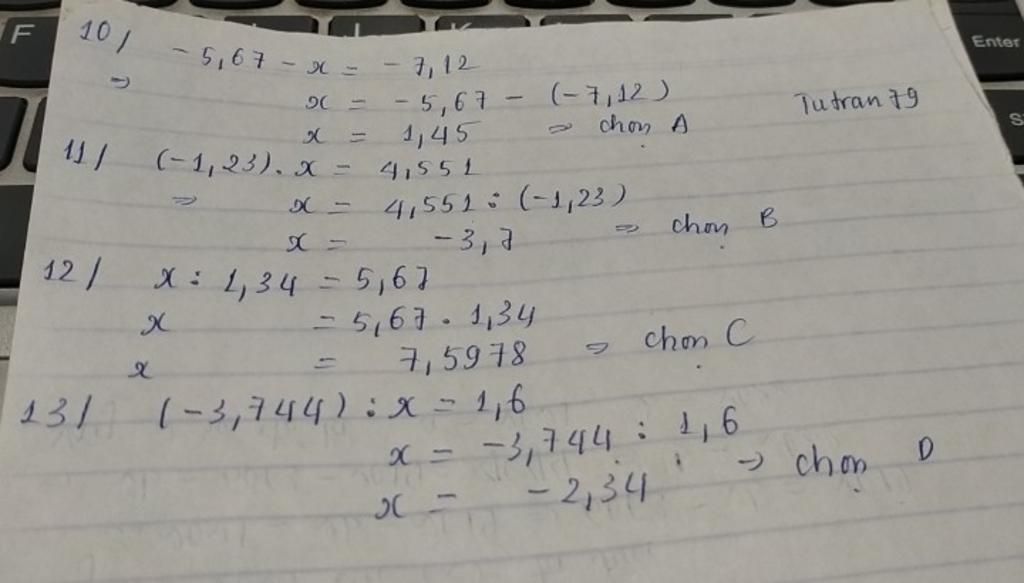 F
Enter
10/ -5,67 - x = -7,12
=> x = -5,67 - (-7,12)
Tutran79
x = 1,45 => chọn A
11/ (-1,23). x = 4,551
=> x = 4,551 : (-1,23)
x = -3,7 => chọn B
12/ x : 1,34 = 5,67
x = 5,67 . 1,34
x = 7,5978 => chọn C
13/ (-3,744) : x = 1,6
x = -3,744 : 1,6
x = -2,34 => chọn D